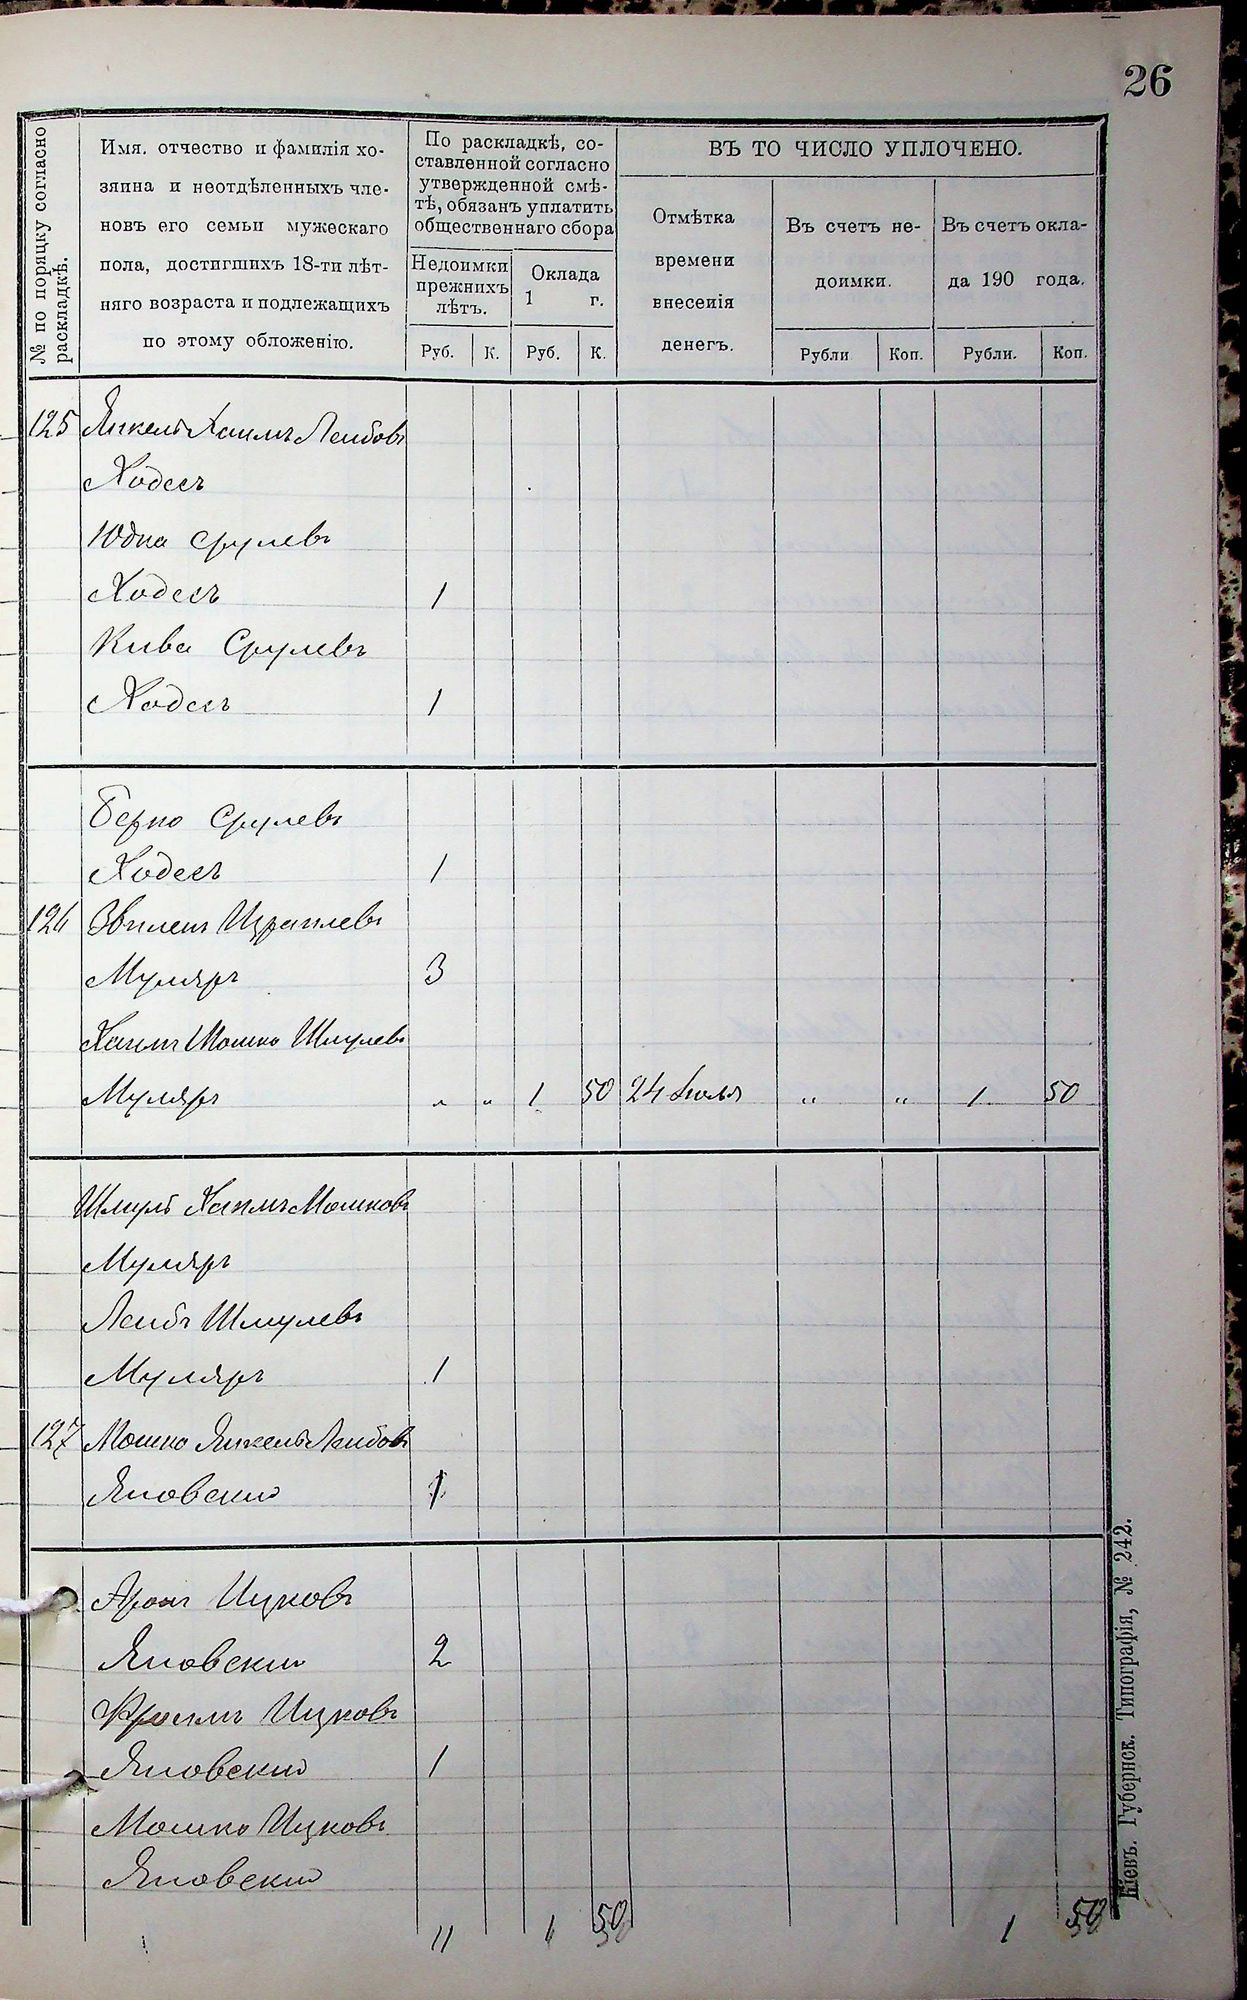 26
№ по порядку согласно
раскладкѣ.
Имя. отчество и фамилія хо-
зяина и неотдѣленныхъ чле-
новъ его семьи мужескаго
пола, достигшихъ 18-ти лѣт-
няго возраста и подлежащихъ
по этому обложенію.
По раскладкѣ, со-
ставленной согласно
утвержденной смѣ-
тѣ, обязанъ уплатить
общественнаго сбора
Недоимки
прежнихъ
лѣтъ.
Оклада
1 г.
Руб. К. Руб. К.
ВЪ ТО ЧИСЛО УПЛОЧЕНО.
Отмѣтка
времени
внесенія
денегъ.
Въ счетъ не-
доимки.
Рубли Коп.
Въ счетъ окла-
да 190 года.
Рубли. Коп.
125 Янкель Хаимъ Лейбовъ
Ходесъ
Юдка Срулевъ
Ходесъ 1
Кива Срулевъ
Ходесъ 1
Берко Срулевъ
Ходесъ 1
126 Израилевъ
Муляръ 3
Хаимъ Мошко Шмулевъ
Муляръ „ „ 1 50 24 Іюля „ „ 1 50
Шмуль Хаимъ Мошковъ
Муляръ
Лейбъ Шмулевъ
Муляръ 1
127 Мошко Янкель Лейбовъ
Яновский 1
Аронъ Ицковъ
Яновский 2
Фроимъ Ицковъ
Яновский 1
Мошко Ицковъ
Яновский
11 1 50 1 50
Кіевъ. Губернск. Типографія, № 242.